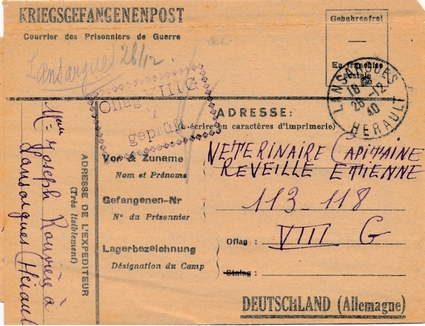 KRIEGSGEFANGENENPOST
Courrier des Prisonniers de Guerre
Gebuhrenfrei
En franchise
postale
Lansargues 26/12
LANSARGUES
18
26-12
40
HERAULT
Oflag VIII G
geprüft
ADRESSE:
(écrire en caractères d'imprimerie)
Vor- & Zuname
Nom et Prénoms
VETERINAIRE CAPITAINE
REVEILLE ETIENNE
Gefangenen-Nr
N° du Prisonnier
113-118
Lagerbezeichnung
Désignation du Camp
Oflag:
VIII G
Stalag:
DEUTSCHLAND (Allemagne)
ADRESSE DE L'EXPEDITEUR
(Très lisiblement)
Mme Joseph à
Lansargues (Hérault